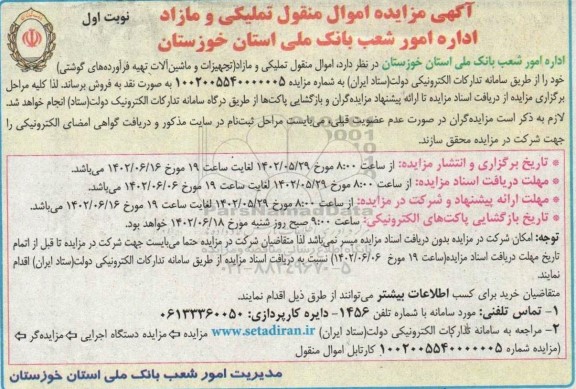 آگهی مزایده اموال منقول تملیکی و مازاد
نوبت اول
اداره امور شعب بانک ملی استان خوزستان
اداره امور شعب بانک ملی استان خوزستان در نظر دارد، اموال منقول تملیکی و مازاد(تجهیزات و ماشین‌آلات تهیه فرآورده‌های گوشتی)
خود را از طریق سامانه تدارکات الکترونیکی دولت(ستاد ایران) به شماره مزایده ۱۰۰۲۰۰۵۵۴۰۰۰۰۰۰۵ به صورت نقد به فروش برساند. لذا کلیه مراحل
برگزاری مزایده از دریافت اسناد مزایده تا ارائه پیشنهاد مزایده‌گران و بازگشایی پاکت‌ها از طریق درگاه سامانه تدارکات الکترونیک دولت(ستاد) انجام خواهد شد.
لازم به ذکر است مزایده‌گران در صورت عدم عضویت قبلی، می‌بایست مراحل ثبت‌نام در سایت مذکور و دریافت گواهی امضای الکترونیکی را
جهت شرکت در مزایده محقق سازند.
* تاریخ برگزاری و انتشار مزایده: از ساعت ۸:۰۰ مورخ ۱۴۰۲/۰۵/۲۹ لغایت ساعت ۱۹ مورخ ۱۴۰۲/۰۶/۱۶ می‌باشد.
* مهلت دریافت اسناد مزایده: از ساعت ۸:۰۰ مورخ ۱۴۰۲/۰۵/۲۹ لغایت ساعت ۱۹ مورخ ۱۴۰۲/۰۶/۰۶ می‌باشد.
* مهلت ارائه پیشنهاد و شرکت در مزایده: از ساعت ۸:۰۰ مورخ ۱۴۰۲/۰۵/۲۹ لغایت ساعت ۱۹ مورخ ۱۴۰۲/۰۶/۱۶ می‌باشد.
* تاریخ بازگشایی پاکت‌های الکترونیکی: ساعت ۹:۰۰ صبح روز شنبه مورخ ۱۴۰۲/۰۶/۱۸ خواهد بود.
توجه: امکان شرکت در مزایده بدون دریافت اسناد مزایده میسر نمی‌باشد لذا متقاضیان شرکت در مزایده حتما می‌بایست جهت شرکت در مزایده تا قبل از اتمام
تاریخ مهلت دریافت اسناد مزایده(ساعت ۱۹ مورخ ۱۴۰۲/۰۶/۰۶) نسبت به دریافت اسناد مزایده از طریق سامانه تدارکات الکترونیکی دولت(ستاد ایران) اقدام
نمایند.
متقاضیان خرید برای کسب اطلاعات بیشتر می‌توانند از طرق ذیل اقدام نمایند.
۱- تماس تلفنی: مورد سامانه با شماره تلفن ۱۴۵۶- دایره کارپردازی: ۰۶۱۳۳۳۶۰۰۵۰
۲- مراجعه به سامانه تدارکات الکترونیکی دولت(ستاد ایران) www.setadiran.ir ⇦ مزایده ⇦ مزایده دستگاه اجرایی ⇦ مزایده‌گر ⇦
(مزایده شماره ۱۰۰۲۰۰۵۵۴۰۰۰۰۰۰۵ کارتابل اموال منقول
مدیریت امور شعب بانک ملی استان خوزستان
ParsNamadData
۰۲۱-۸۸۳۴۹۶۷۰-۵